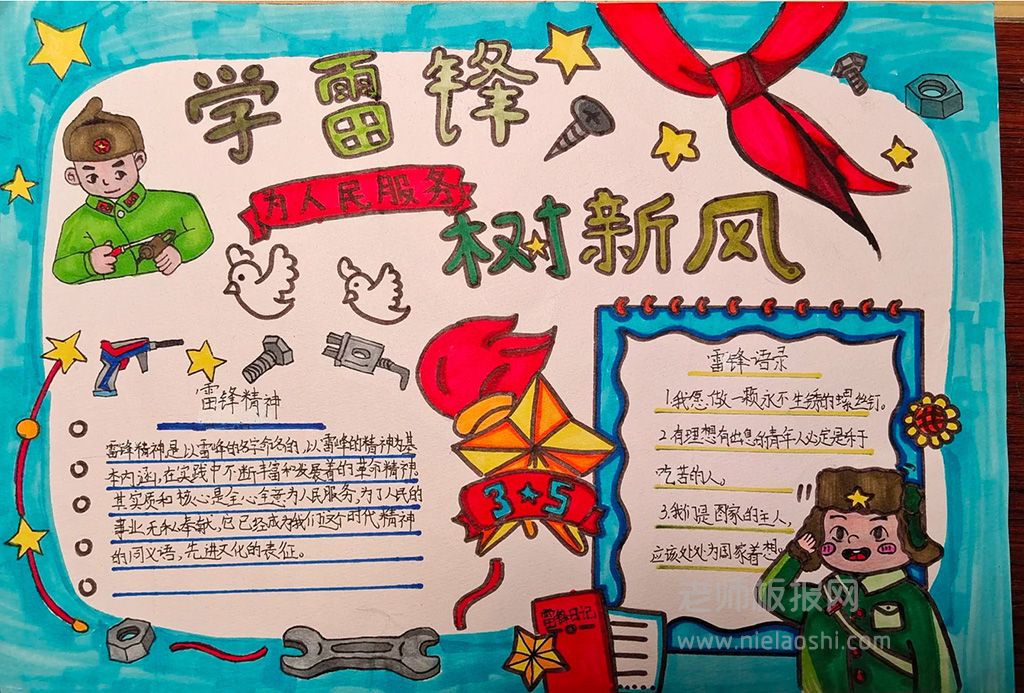 学雷锋
为人民服务
树新风
雷锋精神
雷锋精神是以雷锋的名字命名的,以雷锋的精神为基
本内涵,在实践中不断丰富和发展着的革命精神。
其实质和核心是全心全意为人民服务,为了人民的
事业无私奉献,它已经成为我们这个时代精神
的同义语,先进文化的表征。
3★5
雷锋语录
1.我愿做一颗永不生锈的螺丝钉。
2.有理想有出息的青年人必定是乐于
吃苦的人。
3.我们是国家的主人,
应该处处为国家着想。
雷锋日记
老师板报网
www.nielaoshi.com